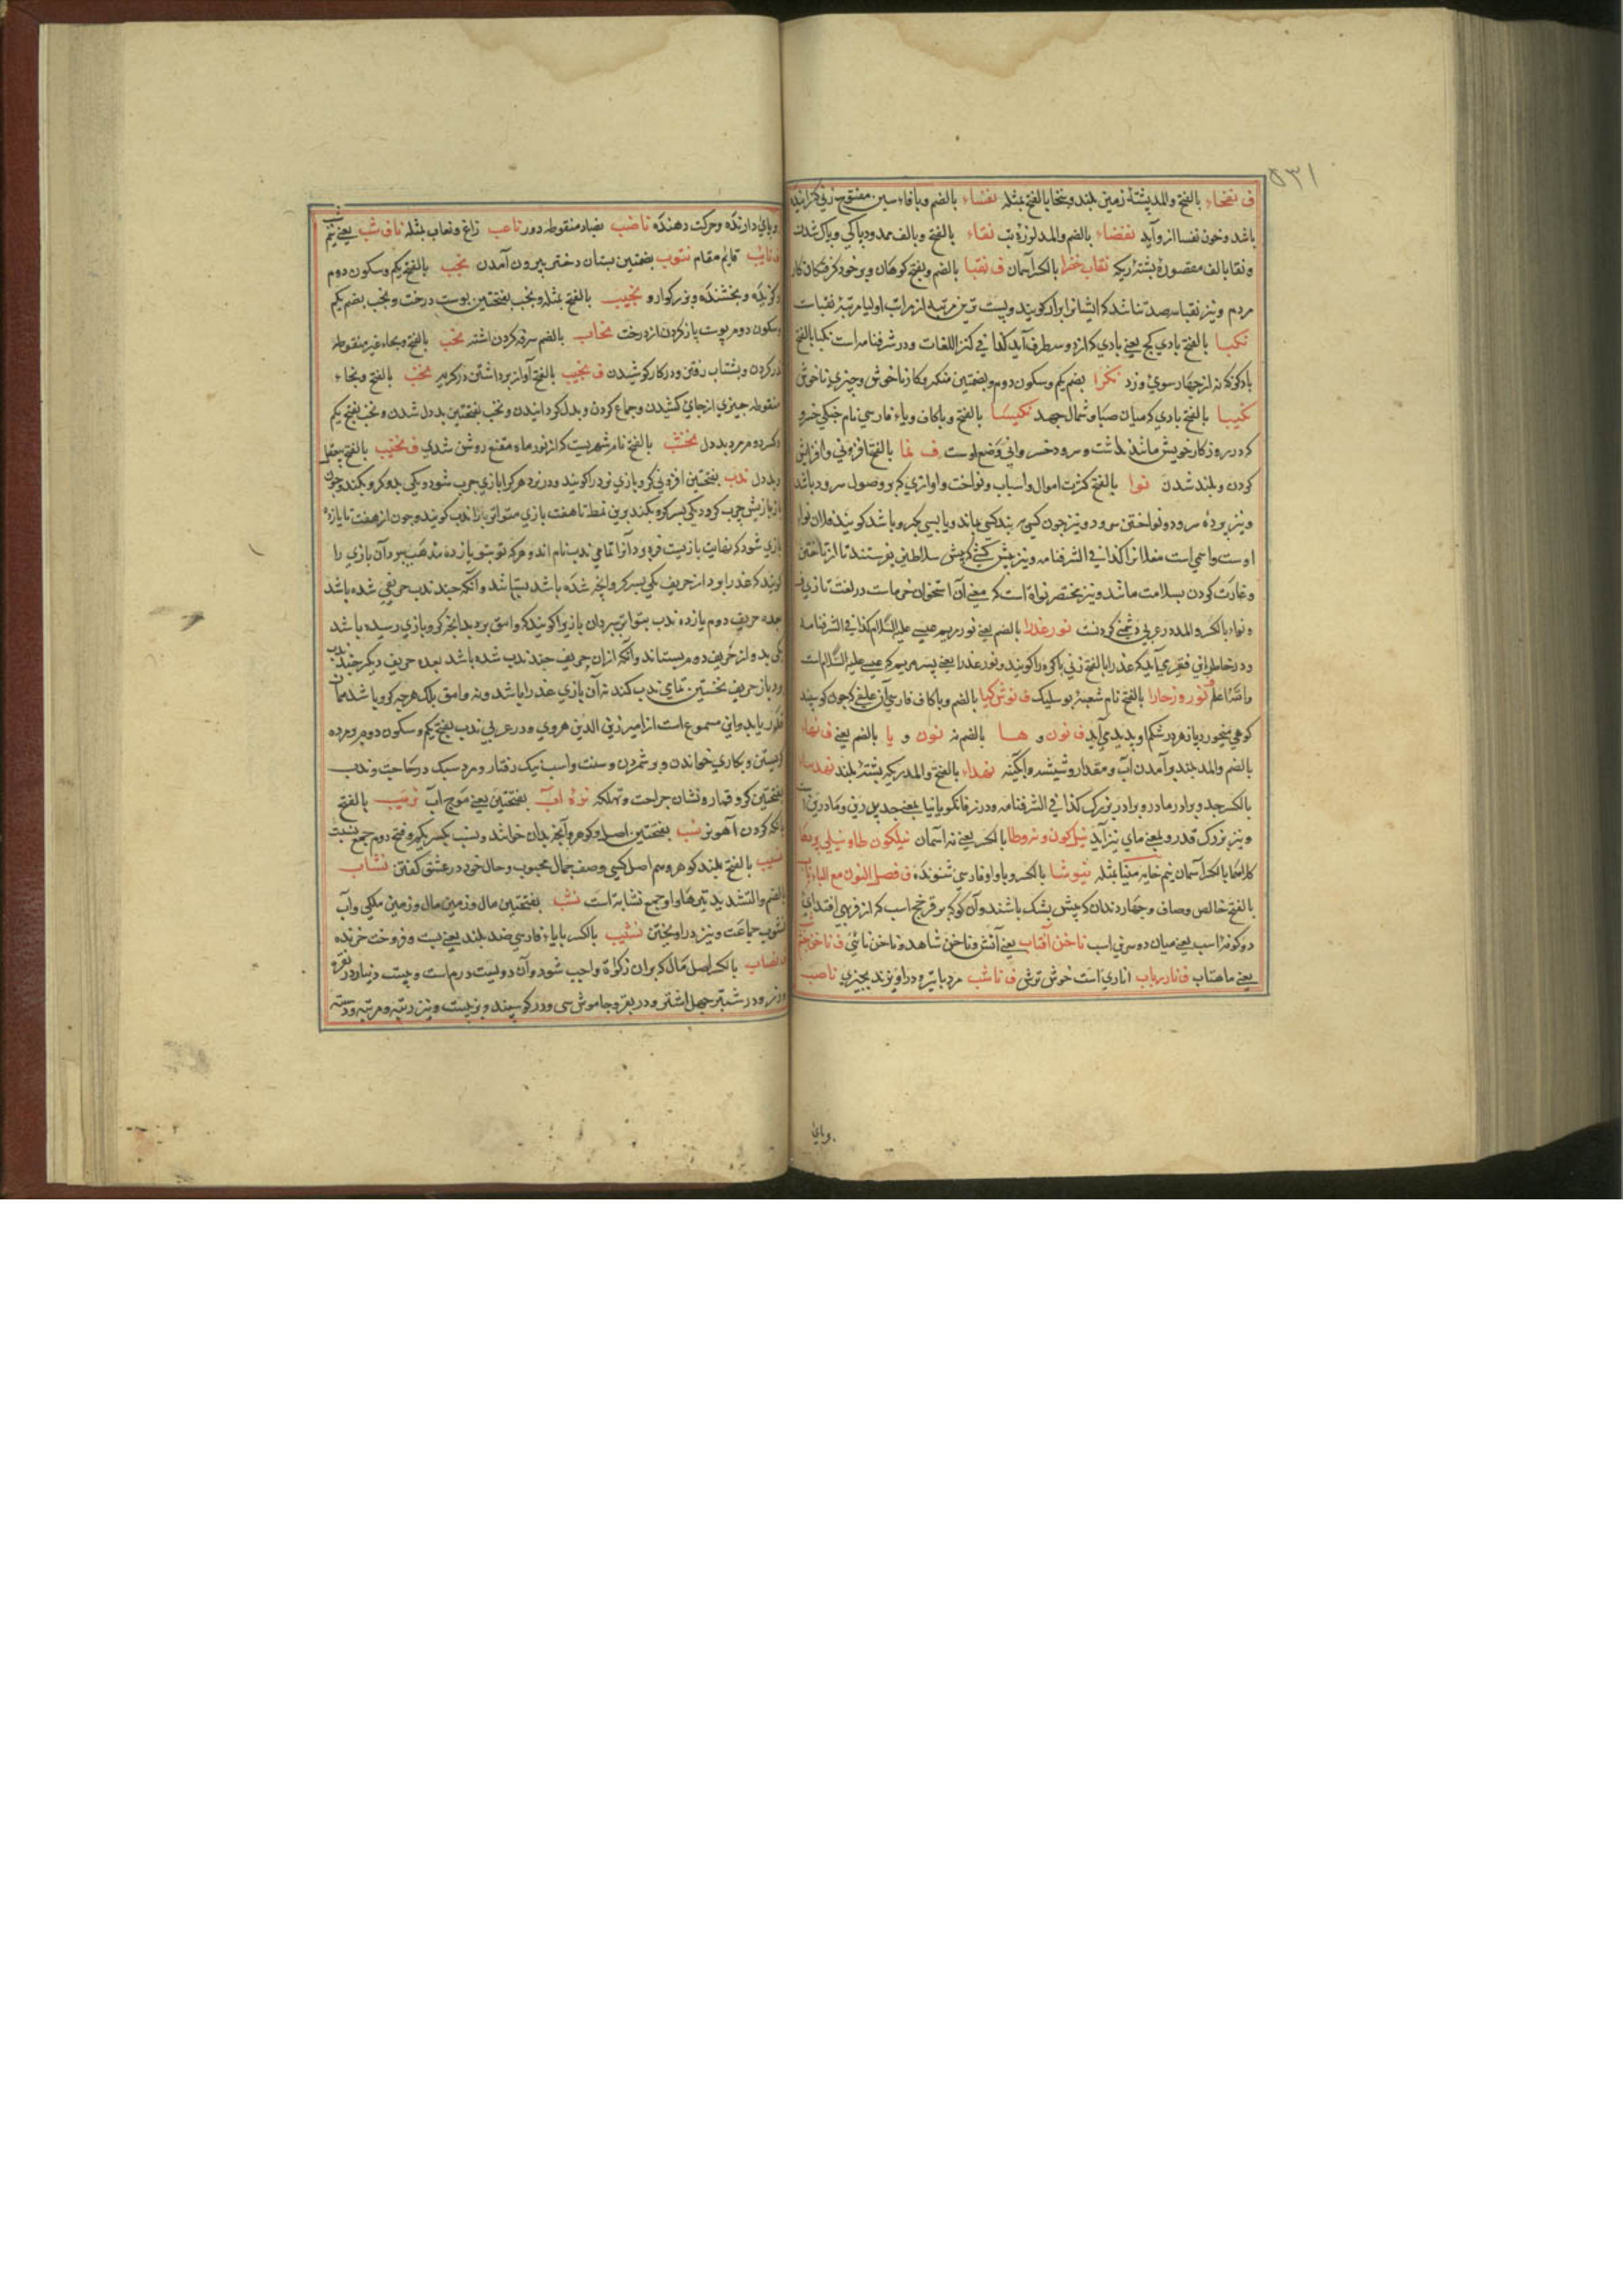 ۵۳۱
ف نفخاء بالفتح والمد پشتهٔ زمین بلند و سخا بالفتح مثله نفساء بالضم و بافاء سین مفتوح زنی که زاییده
باشد و خون نفسا ازو آید نفضاء بالضم والمد لرزهٔ تب نقاء بالفتح و بالف ممدود پاکی و پاک شدن
و نقا بالف مقصوره پشتهٔ ریک نقاب خضرا بالکسر آسمان ف نقبا بالضم و بفتح
مردم و نیز نقبا سه صد تن باشد که ایشانرا ابرار کویند و پست ترین مرتبه از مراتب اولیا مرتبهٔ نقباست
نکبا بالفتح بادی کج یعنی بادی که از دو سه طرف آید کذا فی کنز اللغات و در شرفنامه است نکبا بالفتح
باد کوکه نه از چهار سوی وزد نکرا بضم یکم و سکون دوم و بضمتین منکر و کار ناخوش و چیزی ناخوش
نکیبا بالفتح بادی که میان صبا و شمال جهد نکیسا بالفتح و باکاف و یاء فارسی نام چنکی خسرو
که در روزکار خویش مانند نداشت و سرود خسروانی وضع اوست ف نما بالفتح افزونی و افزایش
کردن و بلند شدن نوا بالفتح کثرت اموال و اسباب و نواخت و آوازی که بر وصول سرود باشد
و نیز پردهٔ سرود و نواختن سرود و نیز چون کسی بند کسی بماند و یا بسی بکرو باشد کویند فلان نوا
اوست و اسمی است مغلانرا کذا فی الشرفنامه و نیز پیش کشی که پیش سلاطین بفرستند تا از تاختن
و غارت کردن بسلامت مانند و نیز مختصر نواة است که معنی آن استخوان خرماست در لغت تازی
و نواء بالکسر والمد در عربی دشمنی کردنست نور عذرا بالضم یعنی نور مریم عیسی علیه السلام کذا فی الشرفنامه
و در خاطر این فقیر می آید که عذرا بالفتح زنی باکره را کویند و نور عذرا یعنی پسر مریم که عیسی علیه السلام است
والله اعلم نوروز خارا بالفتح نام شعبهٔ بوسلیک ف نوش کیا بالضم و باکاف فارسی آن علفی که چون کوسپند
کوهی بخورد پازهر در شکم او پدید می آید ف نون و ها بالضم نه نون و یا بالضم یعنی ف نهاء
بالضم والمد بلند و آمدن آب و مقدار و شیشه و آبکینه نهداء بالفتح والمد ریکه پشتهٔ بلند
بالکسر جد و برادر مادر و برادر بزرک کذا فی الشرفنامه و در زفانکویا نیا بمعنی جد پدرین و مادرین است
و نیز بزرک قدر و بمعنی مای نیز آید نیل کون و نه وطا بالکسر یعنی نه آسمان نیلکون طا و نیلی
بالکسر آسمان نیم خایه مینا مثله نیوشا بالکسر و با واو فارسی شنونده ف فصل النون مع الباء ناب
بالفتح خالص و صاف و چهار دندان که پیش یشک باشند و آن
دوکونه اسب یعنی میان دو سرین اسب ناخن آفتاب یعنی آتش و ناخن شاهد و ناخن نائی ف ناخن
یعنی ماهتاب ف نار یاب اناری است خوش ترش ف ناشب مرد باتیر و دراویزند بچیزی ناصب
وبای
وبای دارنده و حرکت دهنده ناضب بضاد منقوطه دور ناعب زاغ و نعاب مثله ناف شب یعنی نیم شب
نایب قایم مقام نتوب بضمتین پستان دختر بیرون آمدن نجب بالفتح یکم و سکون دوم
و بخشنده و بزرکوار و نجیب بالفتح مثله و نجب بفتحتین پوست درخت و نجب بضم یکم
و سکون دوم پوست باز کردن از درخت نحاب بالضم سرفه کردن اشتر نحب بالفتح و بحاء غیر منقوطه
نذر کردن و بشتاب رفتن و در کار کوشیدن ف نحیب بالفتح آواز برداشتن در کریه نخب بالفتح و بخاء
منقوطه چیزی از جای کشیدن و جماع کردن و بددل کردانیدن و نخب بفتحتین بددل شدن و نخب بفتح یکم
و کسر دوم مرد بددل نخشب بالفتح نام شهریست که از نور ماه مقنع روشن شدی ف نخیب بالفتح بی عقل
و بددل ندب بفتحتین افزونی کرو بازی نرد را کویند و در نرد هر کرا بازی چرب شود و یکی بدو کرو بکنند و چون
باز بازیش چرب کرد یکی بسه کرو بکنند برین نمط تا هفت بازی متواتر باز ندب کویند و چون از هفت تا یازده
بازی شود که نهایت بازیست فره و آنرا تمامی ندب نام اند و هر که نوبتی یازده ندهب ببرد آن بازی را
کویند که عذرا بود از حریف یکی بسه کرو آنچه شده باشد بستاند و آنکه چند ندب حریفی شده باشد
بعده حریف دوم یازده ندب متواتر ببرد آن بازیرا کویند که وامق برد بدانچه کرو بازی رسیده باشد
یکی بدو از حریف دوم بستاند و آنکه ازان حریف چند ندب شده باشد بعده حریف دیکر چند ندب
و باز حریف نخستین تمامی ندب کند نه آن بازی عذرا باشد و نه وامق بلک هرچه کرو باشد همان
قدر یابد و این مسموع است از امیر زین الدین هروی و در عربی ندب بفتح یکم و سکون دوم بر مرده
کریستن و بکاری خواندن و بر شمردن و سنت و اسب نیک رفتار و مرد سبک در حاجت و ندب
بفتحتین کرو قمار و نشان جراحت و تهلکه نزه آب بفتحتین یعنی موج آب نزیب بالفتح
بانک کردن آهوی نر نسب بفتحتین اصل و کوهر و آنچه بدان خوانند و نسب بکسر یکم و فتح دوم جمع نسبت
نسیب بالفتح بلند کوهر و هم اصل کسی وصف جمال محبوب و حال خود در عشق کفتن نشاب
بالضم والتشدید تیرها و او جمع نشابة است نشب بفتحتین مال و زمین مال و زمین ملکی و آب
نشوب جماعت و نیز در آویختن نشیب بالکسر بایاء فارسی ضد بلند یعنی پست و فروخت خرنده
نصاب بالکسر اصل مال که بران زکوة واجب شود و آن دویست درم است و بیست دینار در نقره
و زر و در شتر چهل اشتر و در بقر و جاموش سی و در کوسپند و بز بیست و نیز رتبه و مرتبه و دسته